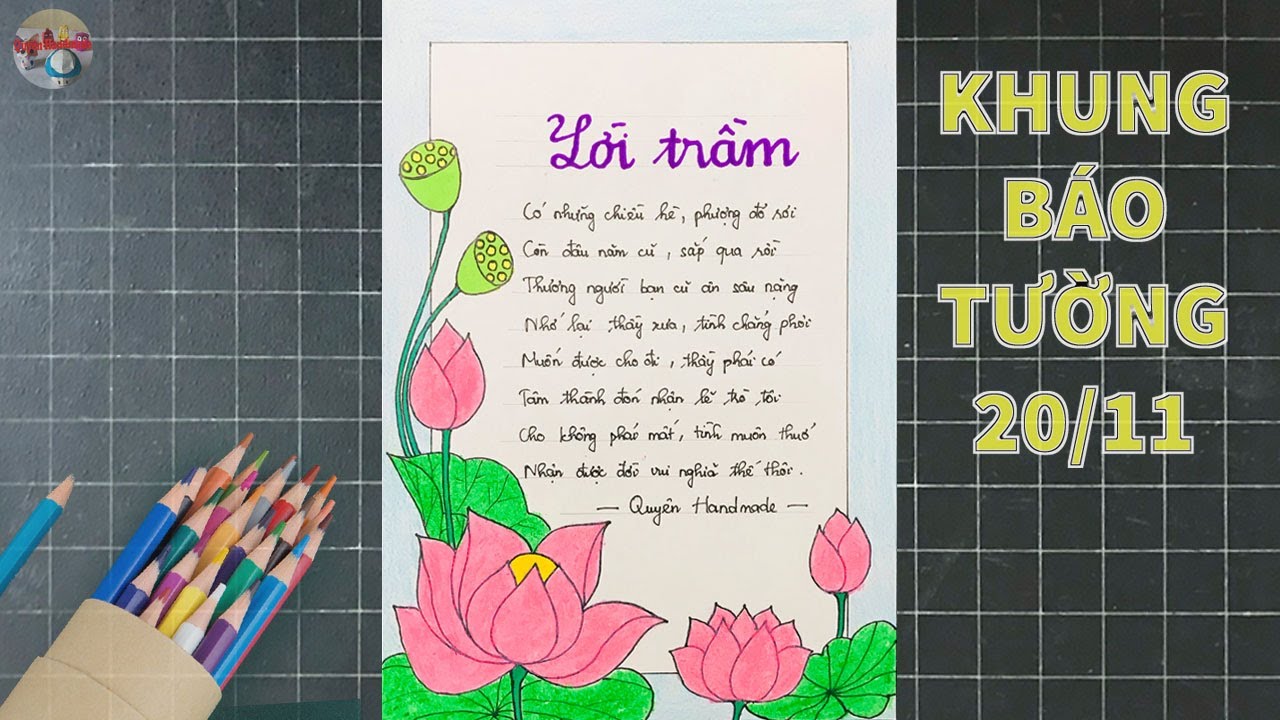 Lời trầm
Có những chiều hè, phượng đỏ rơi
Còn đâu năm cũ, sắp qua rồi
Thương người bạn cũ ân sâu nặng
Nhớ lại thầy xưa, tình chẳng phời
Muốn được cho đi, thầy phải có
Tâm thành đón nhận lẽ trò tôi
Cho không phải mất, tình muôn thuở
Nhận được đời vui nghĩa thế thôi.
— Quyên Handmade —
KHUNG
BÁO
TƯỜNG
20/11